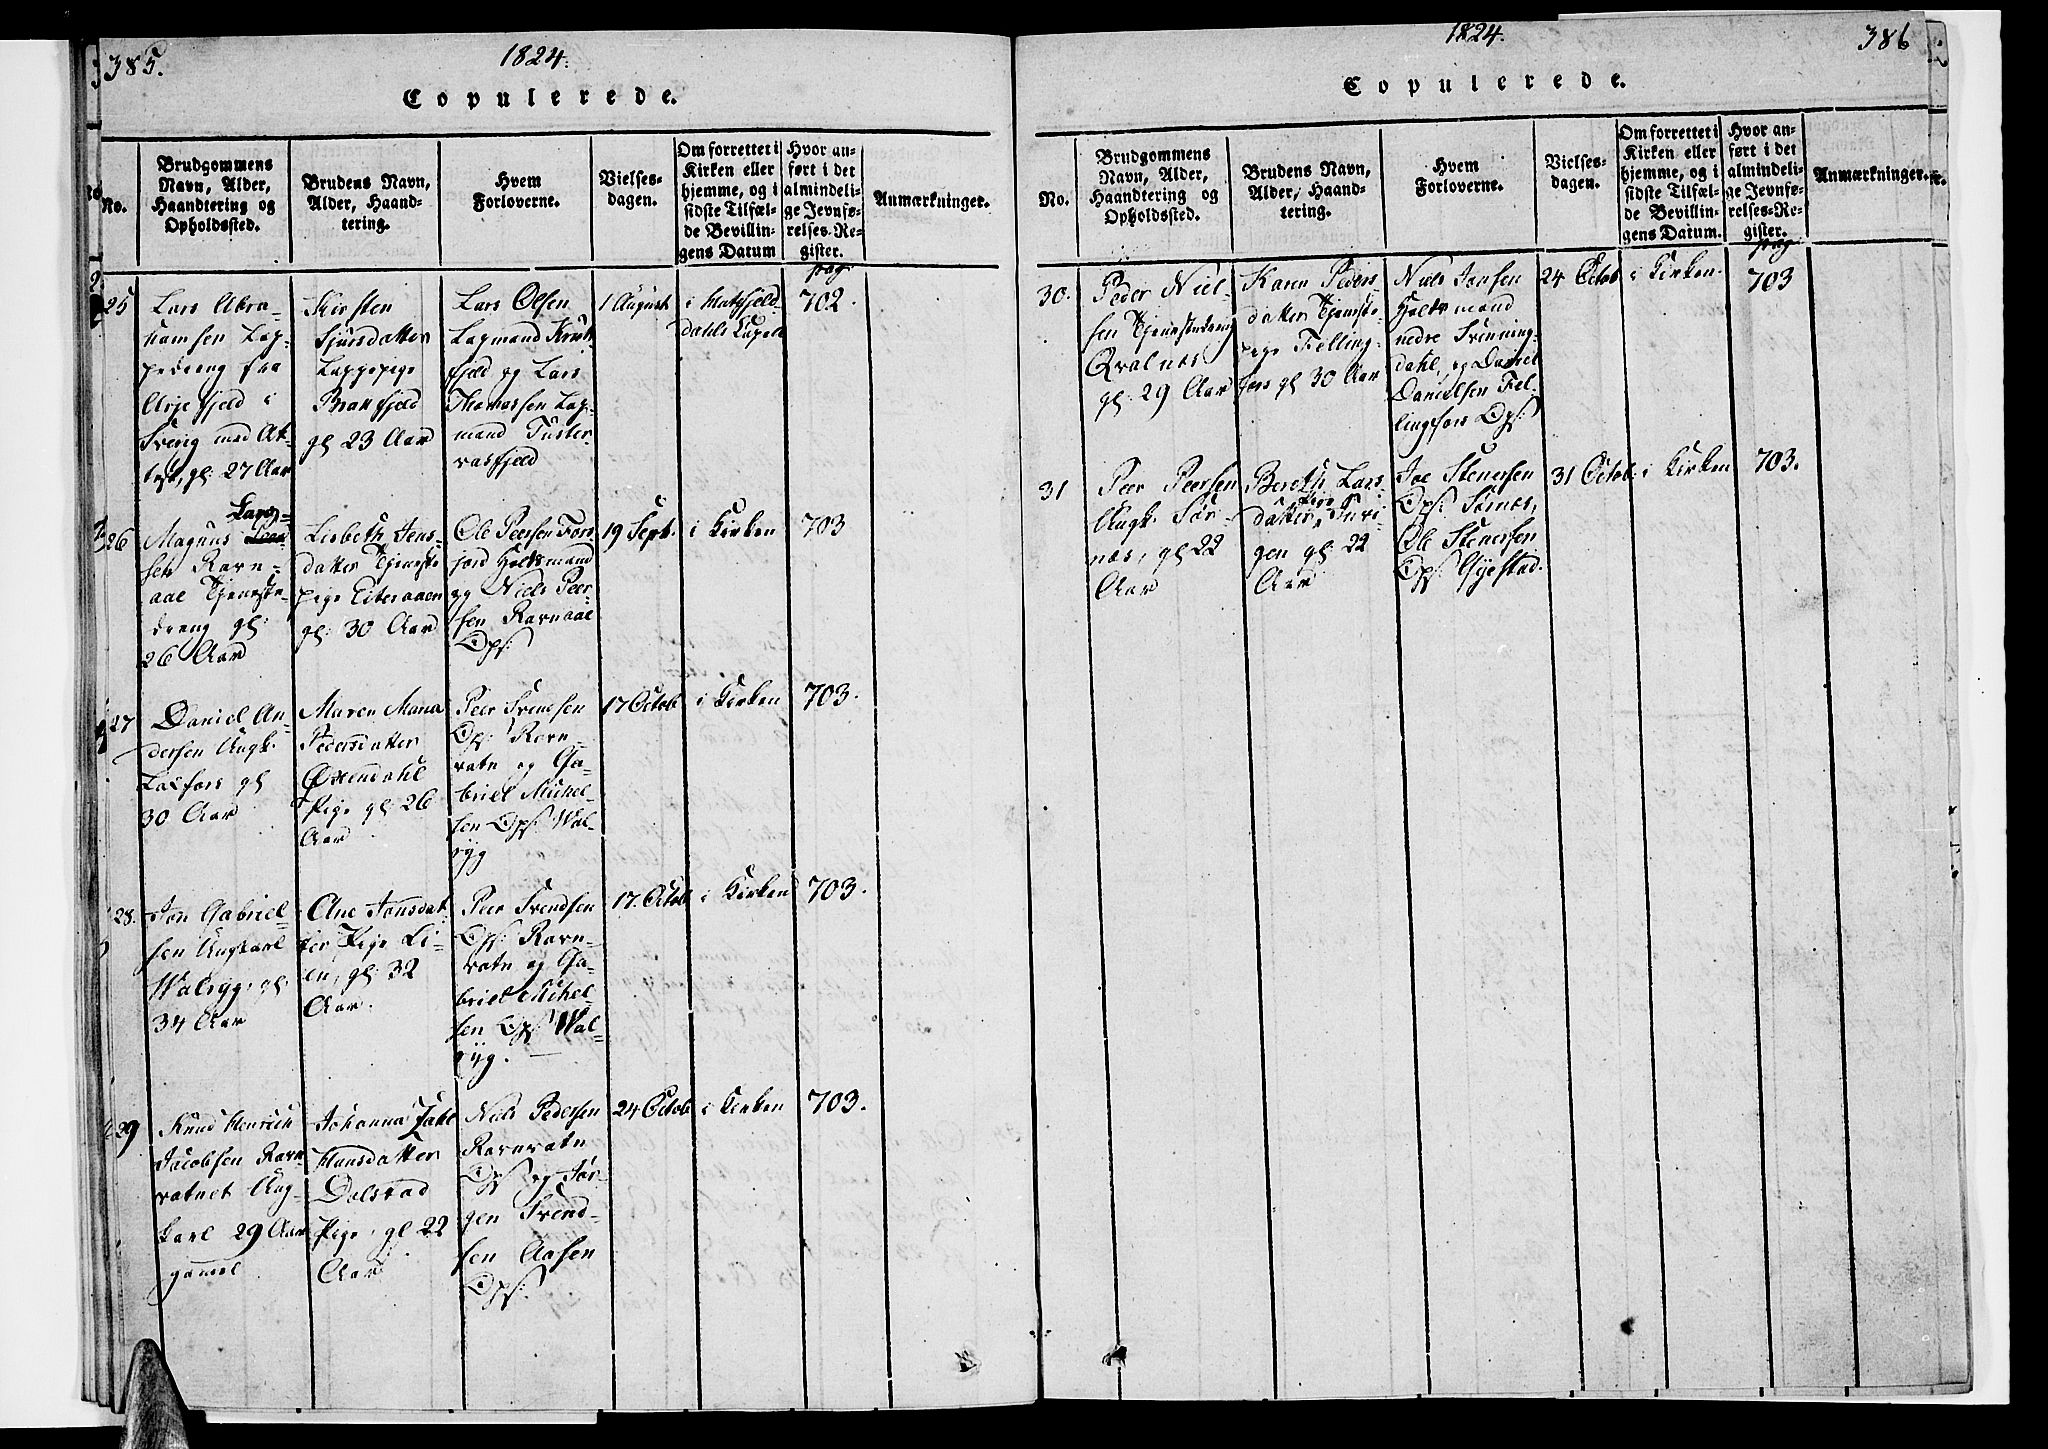 385.
1824.
Copulerede.
No.
Brudgommens
Navn, Alder,
Haandtering og
Opholdssted.
Brudens Navn,
Alder, Haand-
tering.
Hvem
Forloverne.
Vielses-
dagen.
Om forrettet i
Kirken eller
hjemme, og i
sidste Tilfæl-
de Bevillin-
gens Datum
Hvor an-
ført i det
almindeli-
ge Jevnfø-
relses-Re-
gister.
Anmærkninger.
pag
25
Lars Abra-
hamsen Lap-
pedreng fra
Arjefjeld i
Sverig med At-
test, gl: 27 Aar
Kirsten
Sjursdatter
Lappepige
gl 23 Aar
Lars Olsen
Lapmand
fjeld og Lars
Thomassen Lap-
mand Tuster-
vasfjeld
1 August
i Hatfjeld-
dahls Capel
702.
26
Lars-
Magnus
sen Ravn-
aae Tjeneste-
dreng gl:
26 Aar
Lisbeth Jens-
datter Tjeneste
pige Eiteraaen
gl: 30 Aar
Ole Peersen Fors-
jord Holtsmand
og Niels Peer-
sen Ravnaae
Ops:
19 Sept.
i Kirken
703
27
Daniel An-
dersen Ungk.
Laxfors gl
30 Aar
Maren Maria
Pedersdatter
Øxendahl
Pige gl: 26
Aar
Peer Svendsen
Ops: Ravn-
vatn og Ga-
briel Michel-
sen Ops: Wal-
ryg
17 Octob
i Kirken
703.
28.
Jon Gabriel-
sen Ungkarl
Walryg. gl.
34 Aar
Ane Jonsdat-
ter Pige Li-
en, gl: 32
Aar.
Peer Svendsen
Ops: Ravn-
vatn og Ga-
briel Michel-
sen Ops: Wal-
ryg.
17. Octob
i Kirken
703.
29
Knud Henrich
Jacobsen Ravn-
vatnet Ung-
karl 29 Aar
gamel
Johanna
Hansdatter
Dolstad
Pige, gl 22
Aar
Niels Pedersen
Ravnvatn
Ops og Jør-
gen Svend-
sen Aasen
Ops:
24 Octob
i Kirken
703.
1824.
386
Copulerede.
No.
Brudgommens
Navn, Alder,
Haandtering og
Opholdssted.
Brudens Navn,
Alder, Haand-
tering.
Hvem
Forloverne.
Vielses-
dagen.
Om forrettet i
Kirken eller
hjemme, og i
sidste Tilfæl-
de Bevillin-
gens Datum.
Hvor an-
ført i det
almindeli-
ge Jevnfø-
relses-Re-
gister.
Anmærkninger.
pag
30.
Peder Niel-
sen Tjenestedreng
Qvalnes
gl: 29 Aar
Karen Peders-
datter Tjeneste-
pige Felling-
fors gl 30 Aar
Niels Jonsen
Holtsmand
nedre Svenning-
dahl, og Daniel
Danielsen Fel-
lingfors Ops
24 Octob
i Kirken.
703
31
Peer Peersen
Ungk. Sør-
næs, gl 22
Aar
Bereth Lars
Pige
datter,
gen gl: 22
Aar
Joe Stenersen
Ops: Sørnæs,
Ole Stenersen
Ops:
31 Octob:
i Kirken
703.